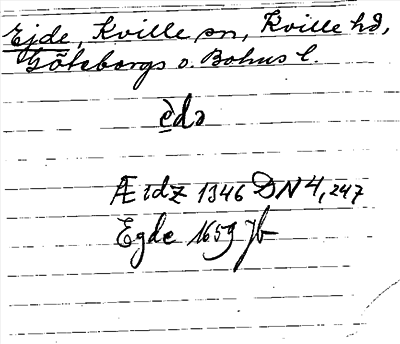 Ejde, Kville sn, Kville hd,
Göteborgs o. Bohus l.
è̱də
Æidz 1346 DN 4, 247
Egde 1659 Jb